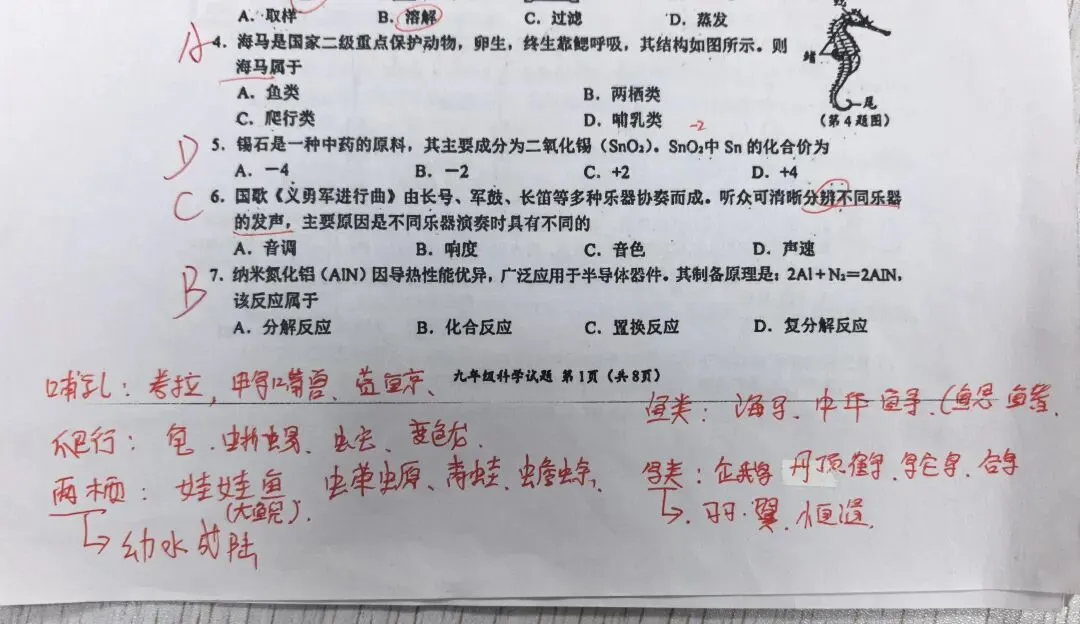 A. 取样 B. 溶解 C. 过滤 D. 蒸发
A 4. 海马是国家二级重点保护动物，卵生，终生靠鳃呼吸，其结构如图所示。则
海马属于
A. 鱼类 B. 两栖类
C. 爬行类 D. 哺乳类
鳍
尾
(第4题图)
-2
D 5. 锡石是一种中药的原料，其主要成分为二氧化锡（SnO₂）。SnO₂中 Sn 的化合价为
A. －4 B. －2 C. +2 D. +4
C 6. 国歌《义勇军进行曲》由长号、军鼓、长笛等多种乐器协奏而成。听众可清晰分辨不同乐器
的发声，主要原因是不同乐器演奏时具有不同的
A. 音调 B. 响度 C. 音色 D. 声速
B 7. 纳米氮化铝（AlN）因导热性能优异，广泛应用于半导体器件。其制备原理是：2Al＋N₂＝2AlN，
该反应属于
A. 分解反应 B. 化合反应 C. 置换反应 D. 复分解反应
九年级科学试题 第1页（共8页）
哺乳：考拉，鸭嘴兽、蓝鲸、
鱼类：海马、中华鲟、(鳃 鳍
爬行：龟、蜥蜴、蛇、变色龙、
两栖：娃娃鱼、蝾螈、青蛙、蟾蜍、
(大鲵)、
鸟类：企鹅 丹顶鹤、鸵鸟、鸽
↳ 羽、翼、恒温
↳ 幼水成陆